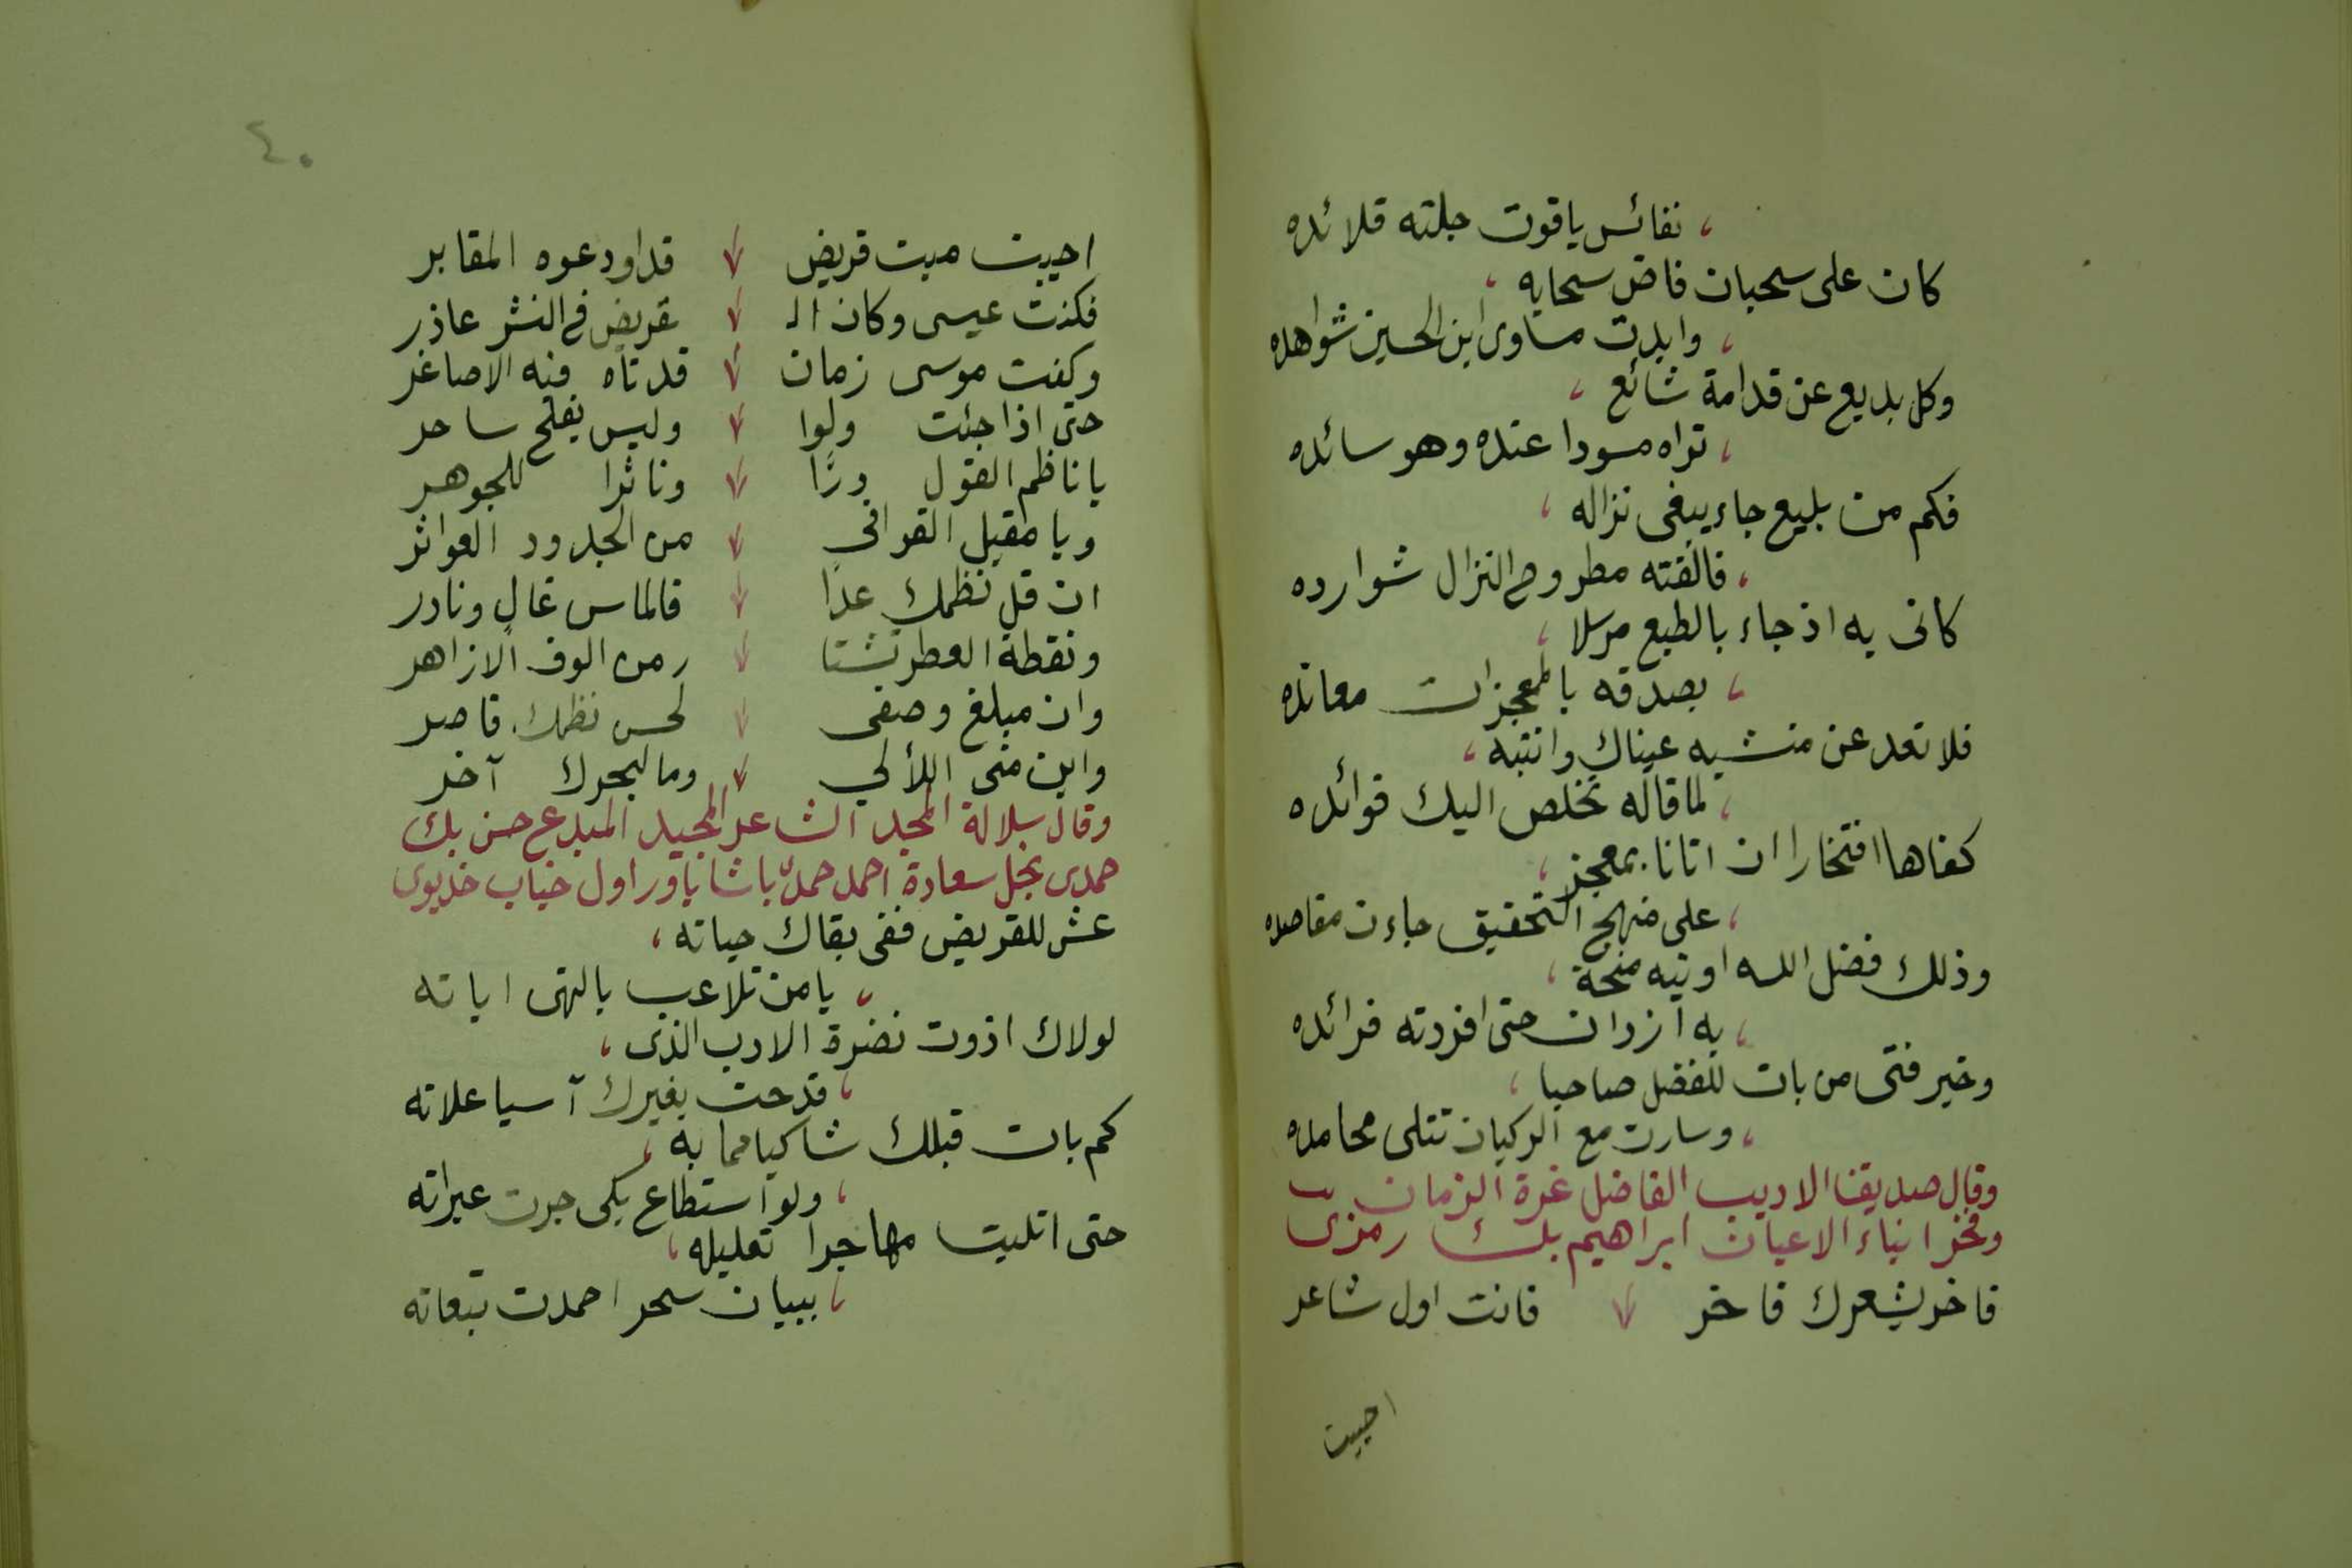 نفائس ياقوت جلته قلائده
كان على سحبان فاض سحابه
وابدت مساوى ابن الحسين شواهده
وكل بديع عن قدامة شائع
تراه مسودا عنده وهو سائده
فكم من بليغ جاء يبغى نزاله
فالقته مطروح النزال شوارده
كانى به اذ جاء بالطبع مرسلا
بصدقه بالمعجزات معانده
فلا تعد عن منشيه عيناك وانتبه
لما قاله تخلص اليك فوائده
كفاها افتخارا ان اتانا بمعجز
على منهج التحقيق جاءت مقاصده
وذلك فضل الله اوتيه منحة
به ازدان حتى افردته فرائده
وخير فتى من بات للفضل صاحبا
وسارت مع الركبان تتلى محامده
وقال صديقنا الاديب الفاضل غرة الزمان
وفخر ابناء الاعيان ابراهيم بك رمزى
فاخر بشعرك فاخر فانت اول شاعر
احييت
٤٠
احييت ميت قريض قد اودعوه المقابر
فكنت عيسى وكان الـ قريض فى النشر عاذر
وكنت موسى زمان قد تاه فيه الاصاغر
حتى اذا جئت ولوا وليس يفلح ساحر
يا ناظم القول درًّا وناثرا للجوهر
ويا مقيل القوافى من الجدود العواثر
ان قل نظمك عدًا فالماس غال ونادر
ونقطة العطر تنشا ر من الوف الازاهر
وان مبلغ وصفى لحسن نظمك قاصر
واين منى اللألي وما لبحرك آخر
وقال سلالة المجد الشاعر المجيد المبدع حسن بك
حمدى نجل سعادة احمد حمدى باشا ياور اول جناب خديوى
عش للقريض ففى بقاك حياته
يا من تلاعب بالنهى اياته
لولاك اذوت نضرة الادب الذى
قدحت بغيرك آسيا علاته
كم بات قبلك شاكيا مما به
ولو استطاع بكى جرت عبراته
حتى اتليت مهاجرا تعليله
ببيان سحر احمدت تبعاته